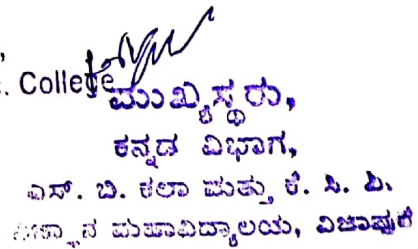 . College
ಮುಖ್ಯಸ್ಥರು,
ಕನ್ನಡ ವಿಭಾಗ,
ಎಸ್. ಬಿ. ಕಲಾ ಮತ್ತು ಕೆ. ಸಿ. ಪಿ.
ವಿಜ್ಞಾನ ಮಹಾವಿದ್ಯಾಲಯ, ವಿಜಾಪುರ